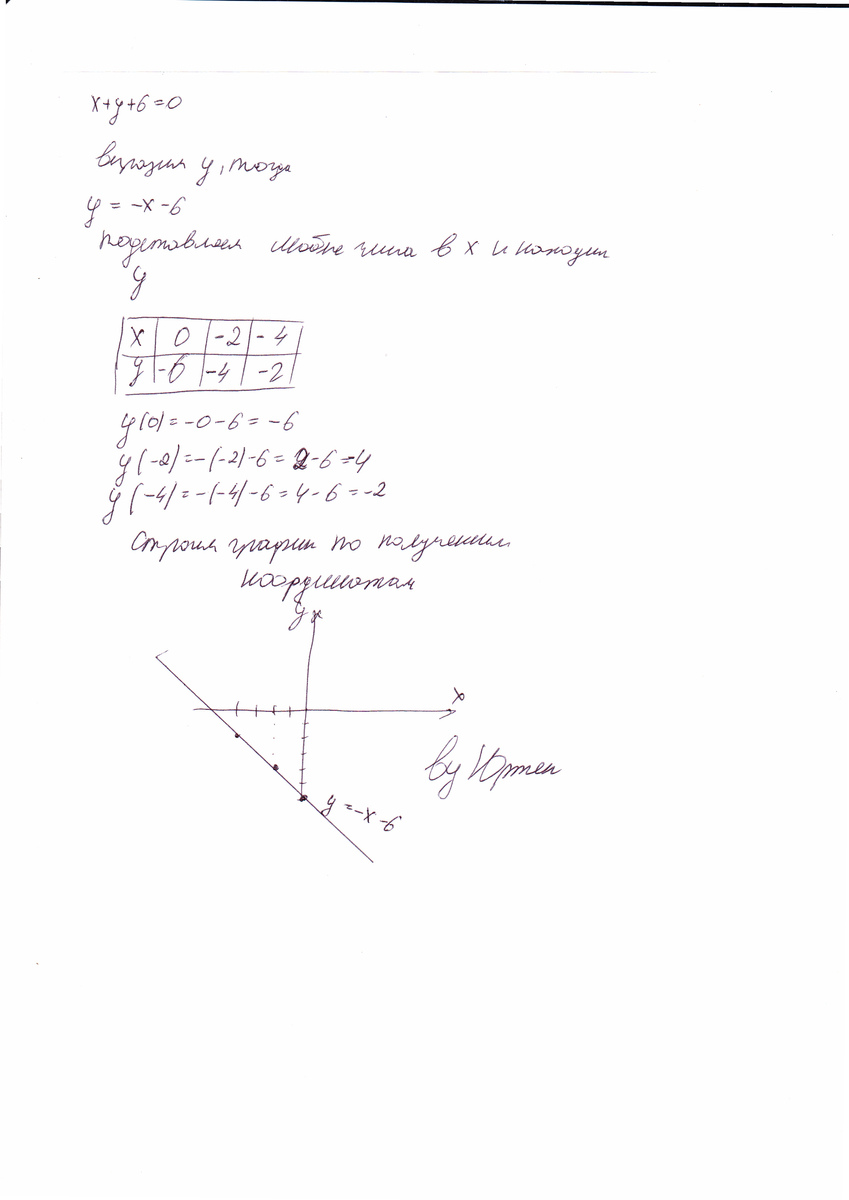 x+y+6=0
выразим y, тогда
y = -x-6
подставляем любые числа в x и находим
y
x 0 -2 -4
y -6 -4 -2
y(0)=-0-6=-6
y(-2)=-(-2)-6=2-6=-4
y(-4)=-(-4)-6=4-6=-2
Строим график по полученным
координатам
y
x
by Юртен
y=-x-6